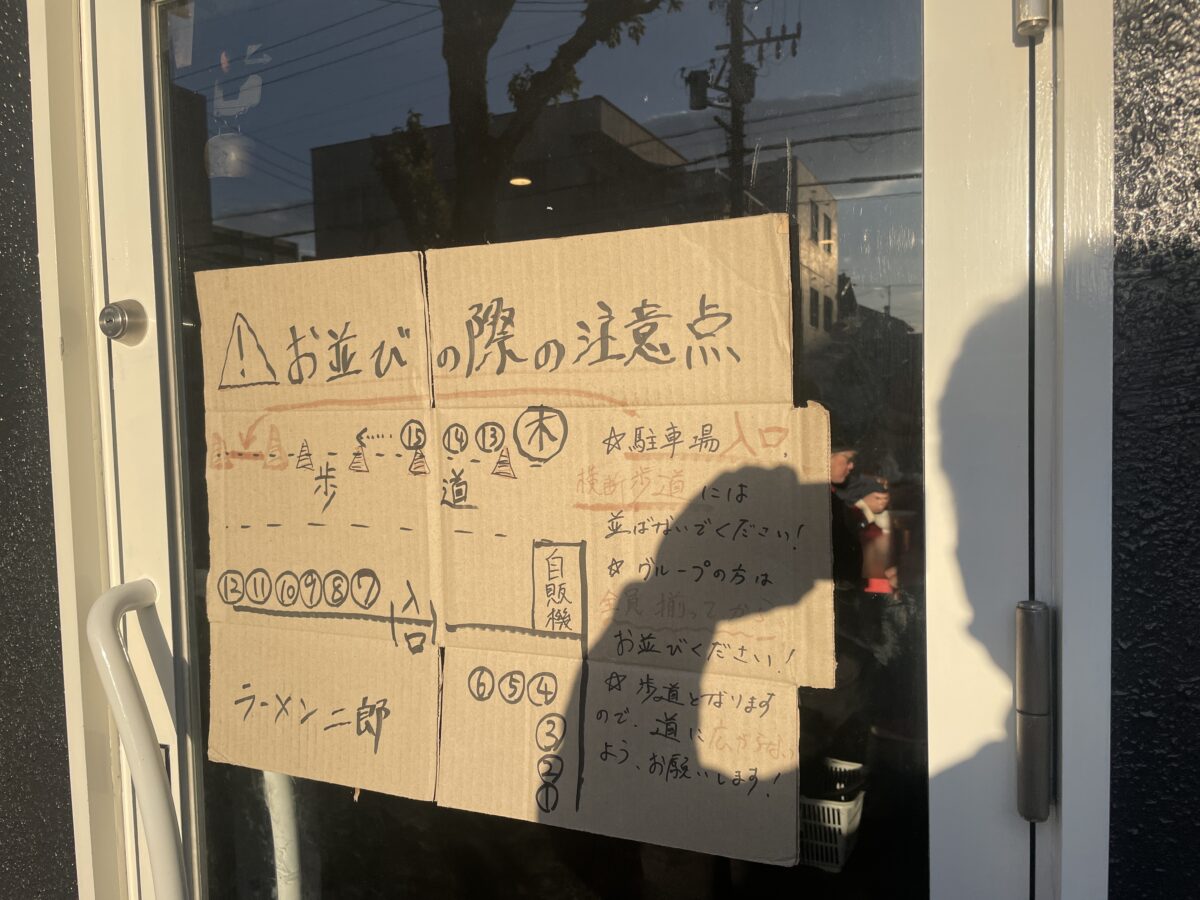 ! お並びの際の注意点
⑮ ⑭ ⑬ 木
歩道
⑫ ⑪ ⑩ ⑨ ⑧ ⑦
入口
自販機
⑥ ⑤ ④
③
②
①
ラーメン二郎
☆駐車場入口、
横断歩道には
並ばないでください!
☆グループの方は
全員揃ってから
お並びください!
☆歩道となります
ので、道に広がらない
よう、お願いします!